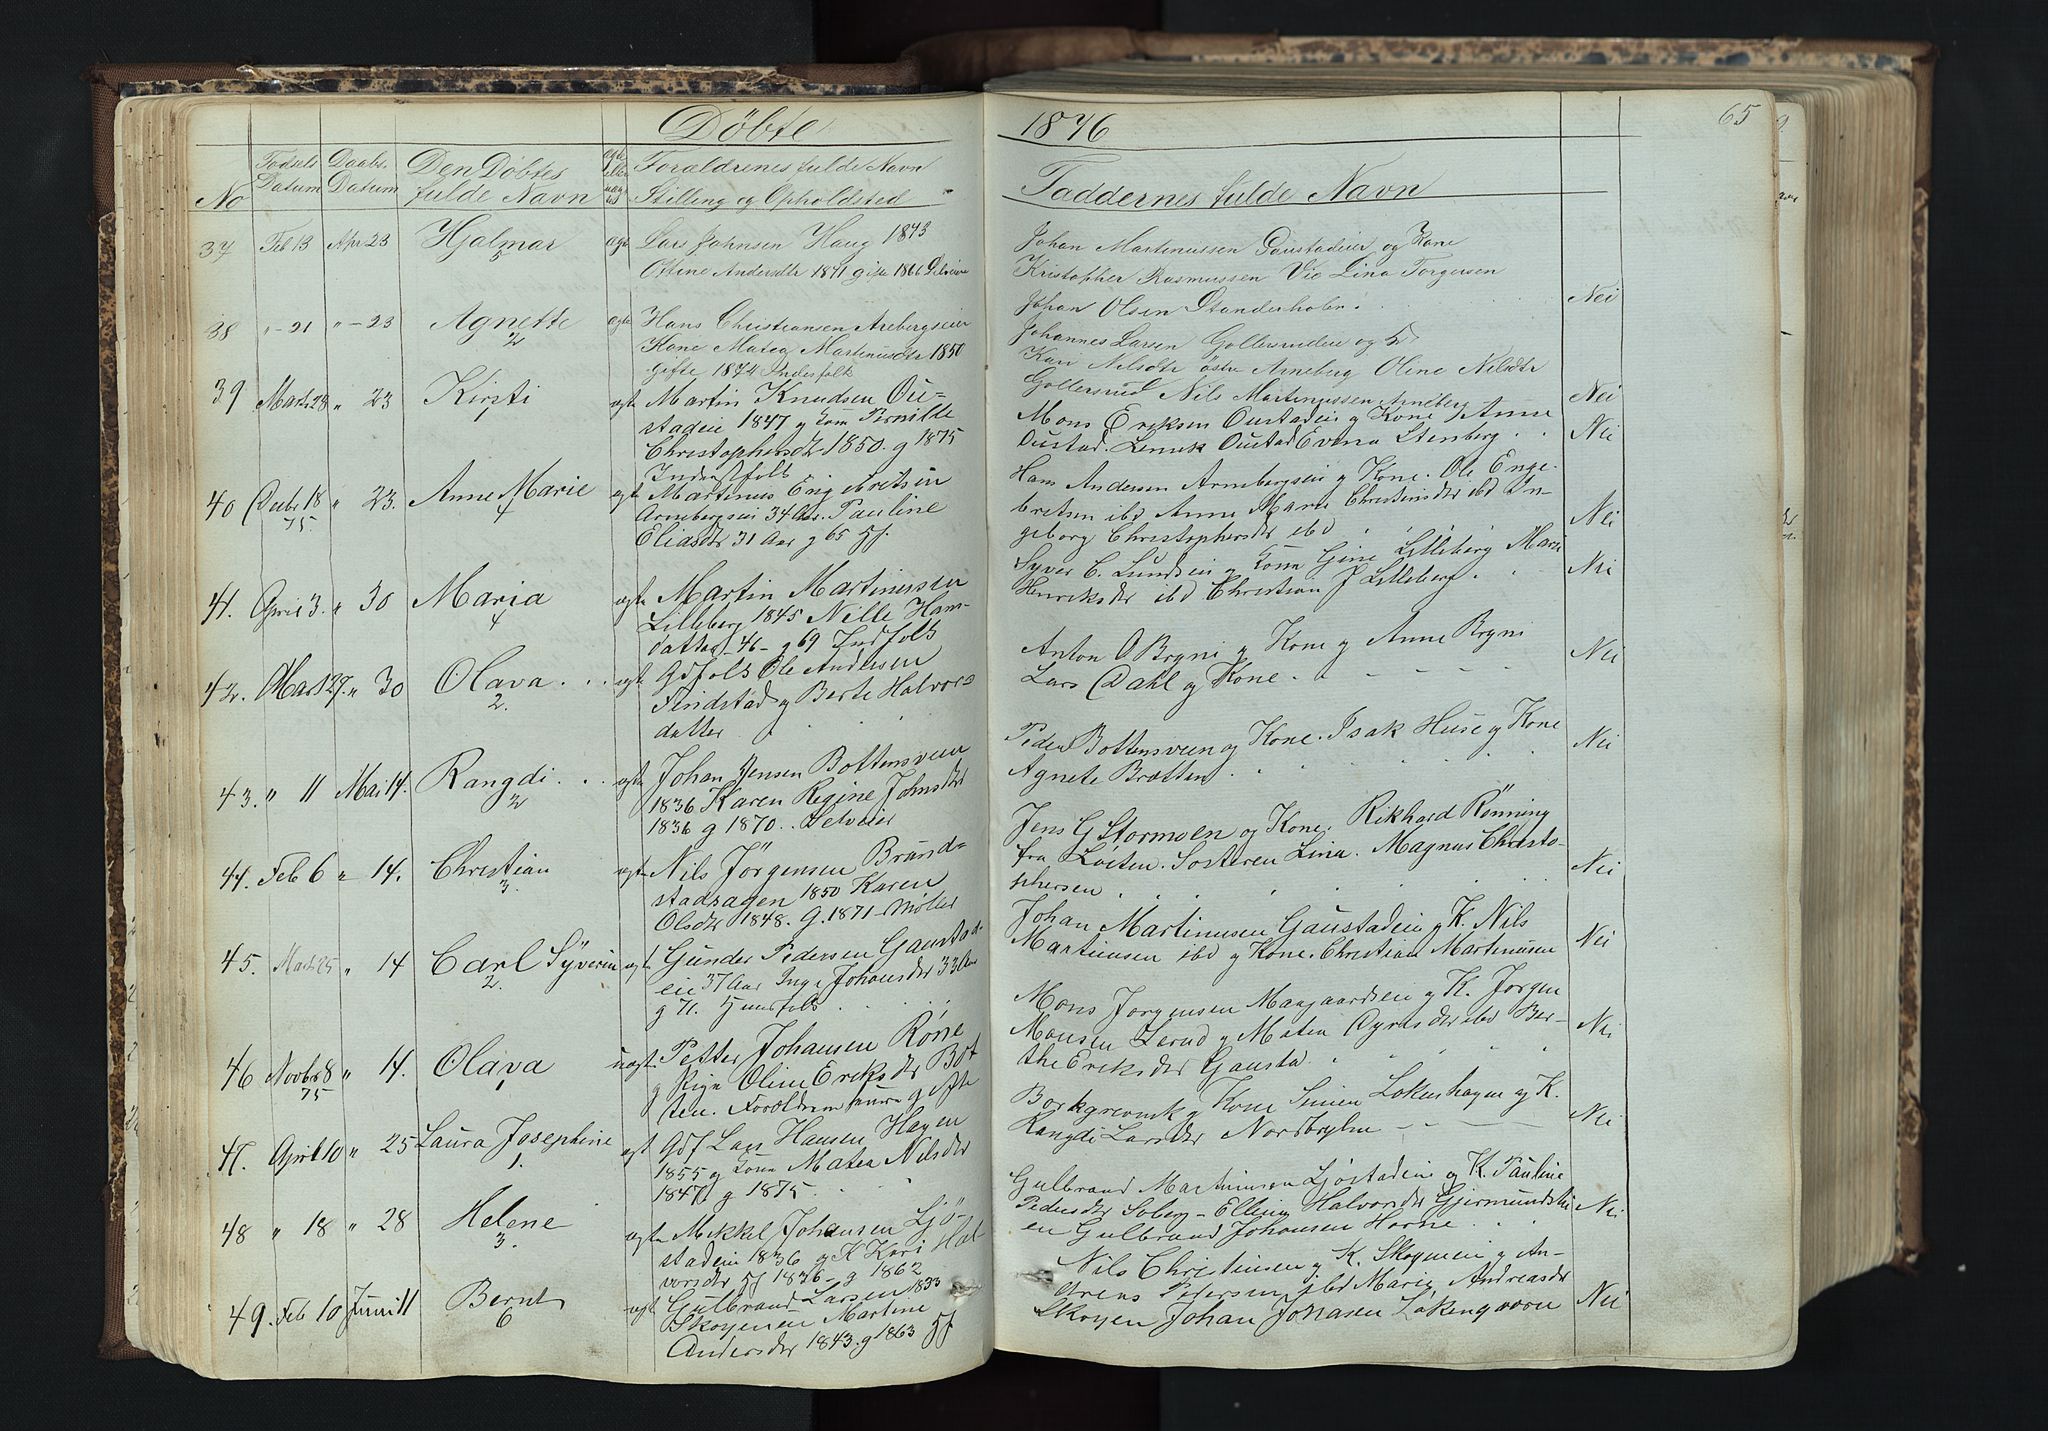 Døbte 1876 65
No
Fødsels Datum
Daabs Datum
Den Døbtes fulde Navn
Forældrenes fulde Navn
Stilling og Opholdsted
Faddernes fulde Navn
37 Feb 13 Apr 23 Hjalmar 5 ægte Lars Johnsen Haug 1843
Ottine Andersdtr 1841 gifte 1866 Selveier
Johan Martinussen Gaustadeier og Kone
Kristopher Rasmussen Vie Lina Torgersen
Johan Olsen Standerholen Nei
38 " - 21 " - 23 Agnette 2 ægte Hans Christiansen Arebergseier
Kone Matea Martinusdtr 1850
gifte 1874 Inderstfolk
Johannes Larsen Gollersrudeie og K
Kari Nilsdtr østre Arneberg Oline Nilsdtr
Gollersrud Nils Martinussen Arneberg Nei
39 Marts 28 " 23 Kirsti 1 ægte Martin Knudsen Ou-
stadeie 1847 g Kone Pernille
Christophersdtr 1850. g 1875
Inderstfolk
Mons Eriksen Oustadeie g Kone Anne
Oustad. Oustad Evena Stenberg Nei
40 Decbr 18 75 " 23. Anne Marie 4 ægte Martinus Engebretsen
Arnebergseie 34 Aar. Pauline
Eliasdtr 31 Aar g 65 Hf.
Hans Andersen Arnebergseie g Kone. Ole Enge-
bretsen ibd Anne Marie Christiansdtr ibd In-
geborg Christophersdtr ibd Nei
41. April 3. " 30 Maria 4 ægte Martin Martinussen
Lilleberg 1845 Nille Hans-
datter 46 - g 69 Indfolk
Syver C. Lundseie g Kone Gine Lilleberg Marie
Henriksdtr ibd Christian J Lilleberg Nei
42. Marts 29. " 30 Olava 2. ægte Gdfolk Ole Andersen
Findstad g Berte Halvors-
datter
Anton O Brgni g Kone g Anne Brgni
Lars Dahl og Kone Nei
43. " 11 Mai 14. Rangdi 2 ægte Johan Jensen Bottensveen
1836 Karen Regine Johnsdtr
1836 g 1870. Selveier
Peder Bottensveen og Kone. Isak Huse g Kone
Agnete Bratten Nei
44. Feb 6 " 14. Christian 3. ægte Nils Jörgensen Bründ-
stadsagen 1850 Karen
Olsdtr 1848. G. 1871 - Møller
Jens G Stormoen og Kone. Rikhard Rönning
fra Løiten. Søsteren Lina. Magnus Christo-
phersen Nei
45. Marts 25 " 14 Carl Syverin 2. ægt Gunder Pedersen Gaustad-
eie 37 Aar Inge Johansdtr 33 Aar
g 71. Huusfolk
Johan Martinusen Gaustadeie g K. Nils
Martinusen ibd g Kone. Christian Martinusen Nei
46 Novbr 8 75 " 14. Olava 1 uægt Petter Johansen Røne
g Pige Oline Eriksdtr Bot
ten. Forældrene senere g ifte
Mons Jörgensen Mangaardseie g K. Jörgen
Monsen Lerud g Matea Gyrdsdtr ibd Ber-
the Eriksdtr Gausta Nei
47. April 10 " 25 Laura Josephine 1. ægt Gdf Lars Hansen Hagen
1855 g Kone Matea Nilsdtr
1847 g 1875.
Borkgrevink g Kone Simen Løkenshagen og K.
Rangdi Larsdtr Nordbyhn Nei
48 " 18 " 28 Helene 3. ægte Mekkel Johansen Ljö-
stadeie 1836 g K Kari Hal-
vorsdtr Hf 1836 - g 1862
Gulbrand Martinusen Ljöstadeie g K. Pauline
Pedersdtr Soberg - Elling Halvorsdtr Gjermundshu
en Gulbrand Johansen Horne Nei
49. Feb 10 Juni 11 Bernt 6 ægt Gulbrand Larsen 1833
Skoyeneie Martine
Andersdtr 1843. g 1863 Hf
Nils Christiansen g K. Skoyeneie g An-
drens Pedersen ibd Marie Andreasdtr
Skoyen Johan Jonasen Løkengaarn Nei